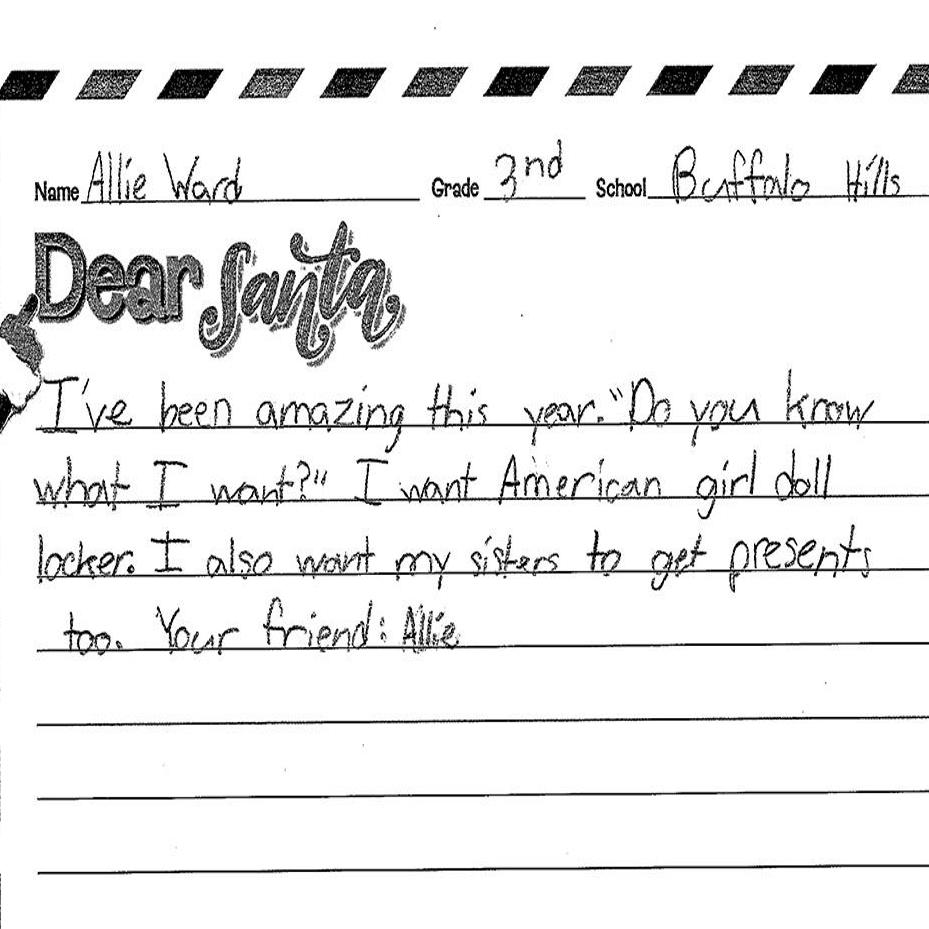 Name Allie Ward Grade 3nd School Buffalo Hills
Dear Santa,
I've been amazing this year. "Do you know
what I want?" I want American girl doll
locker. I also want my sisters to get presents
too. Your friend: Allie